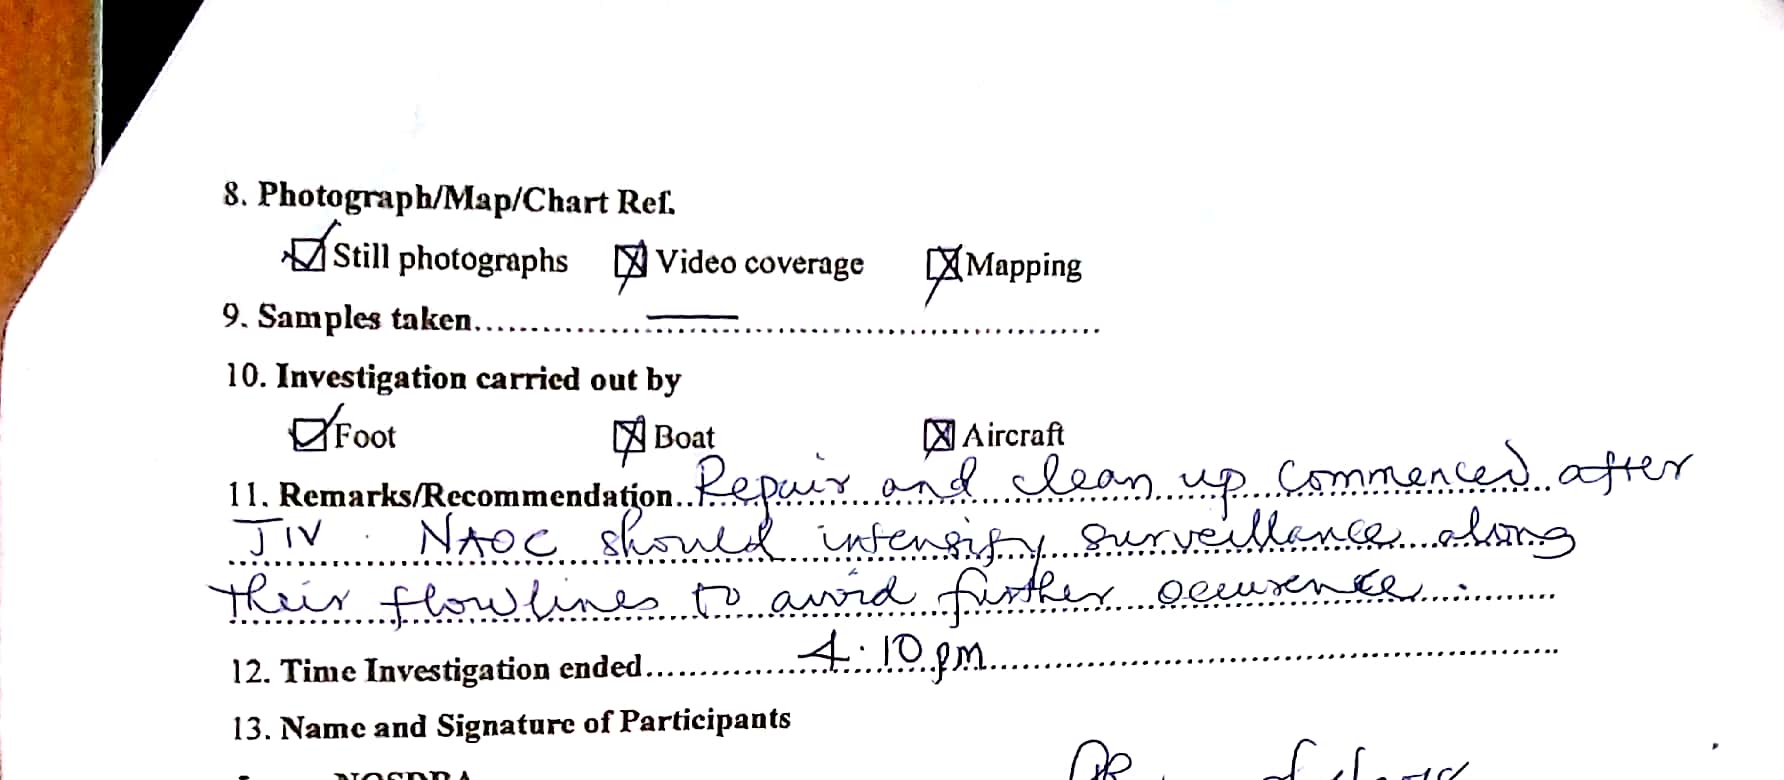 8. Photograph/Map/Chart Ref.
☑ Still photographs ☒ Video coverage ☒ Mapping
9. Samples taken.......—.......
10. Investigation carried out by
☑ Foot ☒ Boat ☒ Aircraft
11. Remarks/Recommendation.. Repair and clean up commenced after
JIV. NAOC should intensify surveillance along
their flowlines to avoid further occurence.
12. Time Investigation ended....... 4:10pm
13. Name and Signature of Participants
NOSDRA